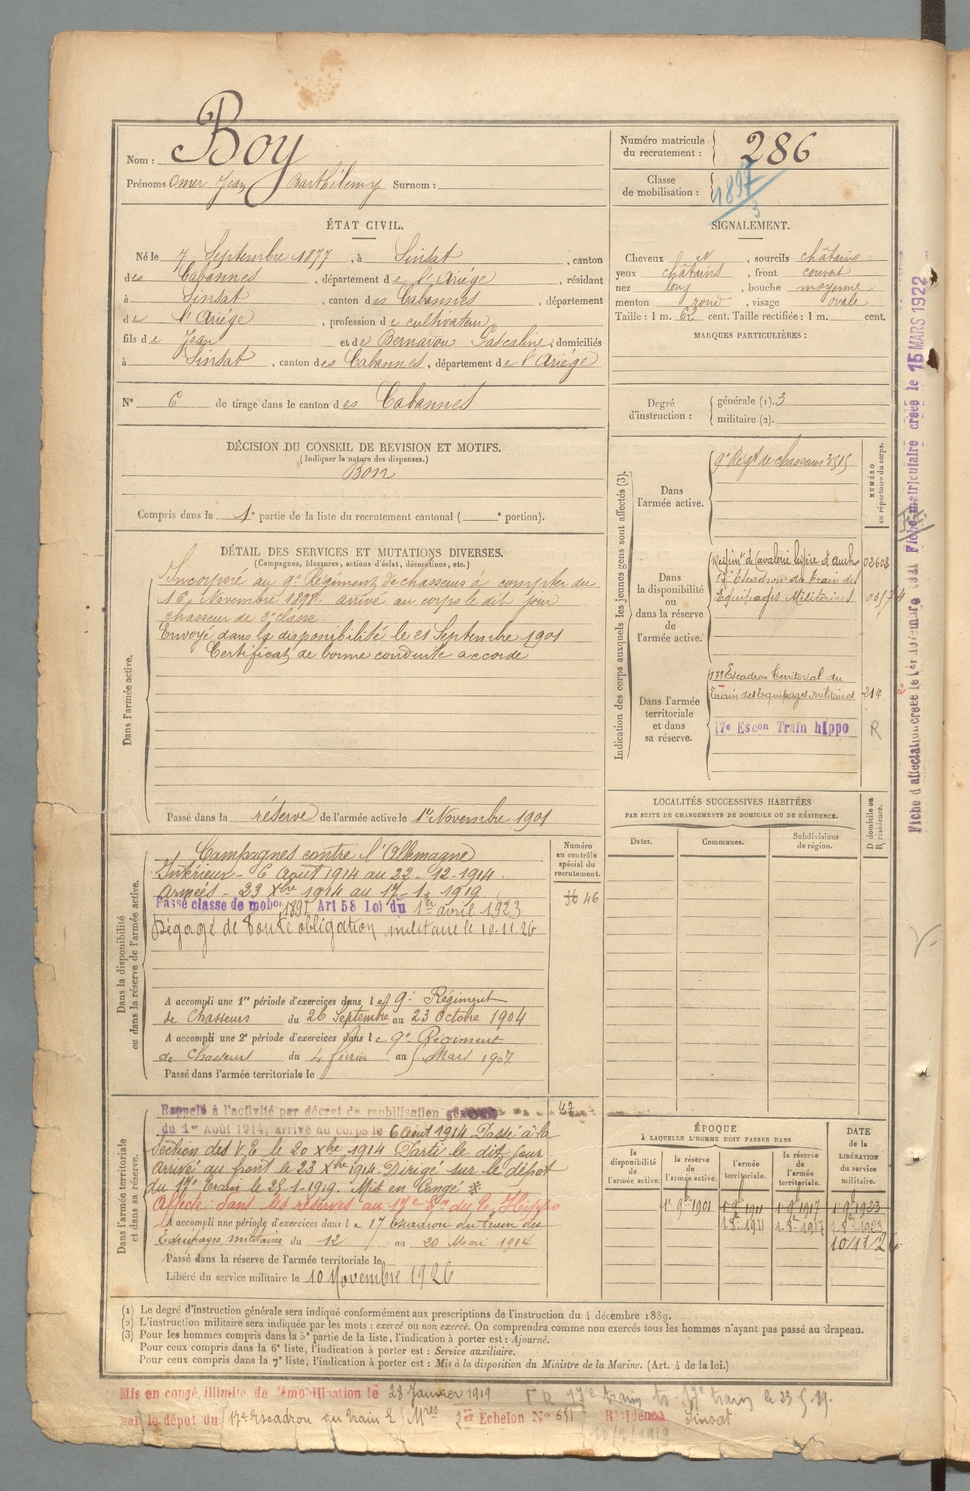 Nom : Boy
Prénoms Omer Jean Barthélemy Surnom :
Numéro matricule du recrutement : 286
Classe de mobilisation : 1897
3
ÉTAT CIVIL.
Né le 7 Septembre 1877, à Sinsat, canton
des Cabannes, département de l'Ariège, résidant
à Sinsat, canton des Cabannes, département
de l'Ariège, profession de cultivateur
fils de Jean et de Bernadou domiciliés
à Sinsat, canton des Cabannes, département de l'Ariège
N° 6 de tirage dans le canton des Cabannes
SIGNALEMENT.
Cheveux sourcils châtains
yeux châtains, front couvert
nez long, bouche moyenne
menton rond, visage ovale
Taille : 1 m. 62 cent. Taille rectifiée : 1 m. cent.
MARQUES PARTICULIÈRES :
Degré d'instruction : générale (1). 3
militaire (2).
DÉCISION DU CONSEIL DE REVISION ET MOTIFS.
(Indiquer la nature des dispenses.)
Bon
Compris dans la 1e partie de la liste du recrutement cantonal ( e portion).
DÉTAIL DES SERVICES ET MUTATIONS DIVERSES.
(Campagnes, blessures, actions d'éclat, décorations, etc.)
Dans l'armée active.
Incorporé au 9e Régiment de chasseurs à compter du
16 Novembre 1898. arrivé au corps le dit jour
chasseur de 2e classe.
Envoyé dans la disponibilité le 21 Septembre 1901
Certificat de bonne conduite accordé
Passé dans la réserve de l'armée active le 1er Novembre 1901
Indication des corps auxquels les jeunes gens sont affectés (3).
NUMÉRO au répertoire du corps.
Dans l'armée active.
9e Régt de chasseurs 3515
Dans la disponibilité ou dans la réserve de l'armée active.
Régimt de Cavalerie légère d'auch 03608
17e Escadron du train des
Equipages Militaires
Dans l'armée territoriale et dans sa réserve.
17e Escadron territorial du
Train des Equipages Militaires 214
17e Escon Train hippo R
Dans la disponibilité ou dans la réserve de l'armée active.
Numéro au contrôle spécial du recrutement.
46
Campagnes contre l'Allemagne
Intérieur - 6 Août 1914 au 22-12-1914.
Armées - 23 Xbre 1914 au 17-1-1919
Passé classe de mobon 1897 Art 58 Loi du 1er avril 1923
Dégagé de toute obligation militaire le 10.11.26
A accompli une 1re période d'exercices dans le 9e Régiment
de Chasseurs du 26 Septembre au 23 Octobre 1904
A accompli une 2e période d'exercices dans le 9e Régiment
de Chasseurs du 4 février au Mars 1907
Passé dans l'armée territoriale le
LOCALITÉS SUCCESSIVES HABITÉES
PAR SUITE DE CHANGEMENTS DE DOMICILE OU DE RÉSIDENCE.
Dates. Communes. Subdivisions de région. D domicile ou R résidence.
Dans l'armée territoriale et dans sa réserve.
Rappelé à l'activité par décret de mobilisation générale
du 1er Août 1914, arrivé au corps le 6 Août 1914 Passé à la
Section des le 20 Xbre 1914 Parti le dit jour
Arrivé au front le 23 Xbre 1914. Dirigé sur le dépôt
du 17e Train le 25-1-1919. Mis en Congé *
Affecté dans les réserves au 17e
A accompli une période d'exercices dans le 17 Escadron du train des
Equipages militaires du 12 au 20 Mai 1914
Passé dans la réserve de l'armée territoriale le
Libéré du service militaire le 10 Novembre 1926
ÉPOQUE
À LAQUELLE L'HOMME DOIT PASSER DANS
la disponibilité de l'armée active. la réserve de l'armée active. l'armée territoriale. la réserve de l'armée territoriale.
DATE de la LIBÉRATION du service militaire.
1 9bre 1901 1 9bre 1911 1 9bre 1917 1 9bre 1923
10/11/26
(1) Le degré d'instruction générale sera indiqué conformément aux prescriptions de l'instruction du 4 décembre 1889.
(2) L'instruction militaire sera indiquée par les mots : exercé ou non exercé. On comprendra comme non exercés tous les hommes n'ayant pas passé au drapeau.
(3) Pour les hommes compris dans la 5e partie de la liste, l'indication à porter est : Ajourné.
Pour ceux compris dans la 6e liste, l'indication à porter est : Service auxiliaire.
Pour ceux compris dans la 7e liste, l'indication à porter est : Mis à la disposition du Ministre de la Marine. (Art. 4 de la loi.)
Mis en congé illimité de démobilisation le 28 Janvier 1919
par le dépôt du 17e Escadron du train Eq Mres 2e Echelon N° Résidence Sinsat
Fiche d'affectation créée le 1er novembre 1921 Fiche matriculaire créée le 15 MARS 1922